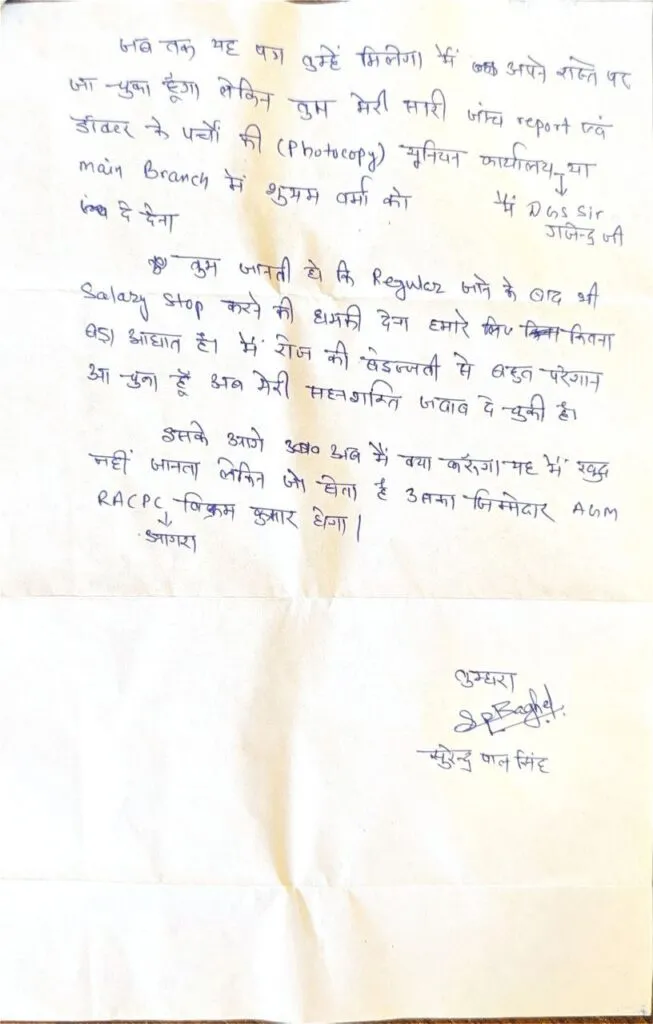 जब तक यह पत्र तुम्हें मिलेगा मैं अपने रास्ते पर
जा चुका हूँगा लेकिन तुम मेरी सारी जाँच report एवं
डॉक्टर के पर्चों की (Photocopy) यूनियन कार्यालय या
main Branch में शुभम वर्मा को में DGS Sir
दे देना गजेन्द्र जी
तुम जानती हो कि Regular जाने के बाद भी
Salary Stop करने की धमकी देना हमारे लिए कितना
बड़ा आघात है। मैं रोज की बेइज्जती से बहुत परेशान
आ चुका हूँ अब मेरी सहनशक्ति जवाब दे चुकी है।
इसके आगे अब मैं क्या करूँगा यह मैं खुद
नहीं जानता लेकिन जो होता है उसका जिम्मेदार AGM
RACPC विक्रम कुमार होगा।
आगरा
तुम्हारा
SP Baghel
सुरेन्द्र पाल सिंह